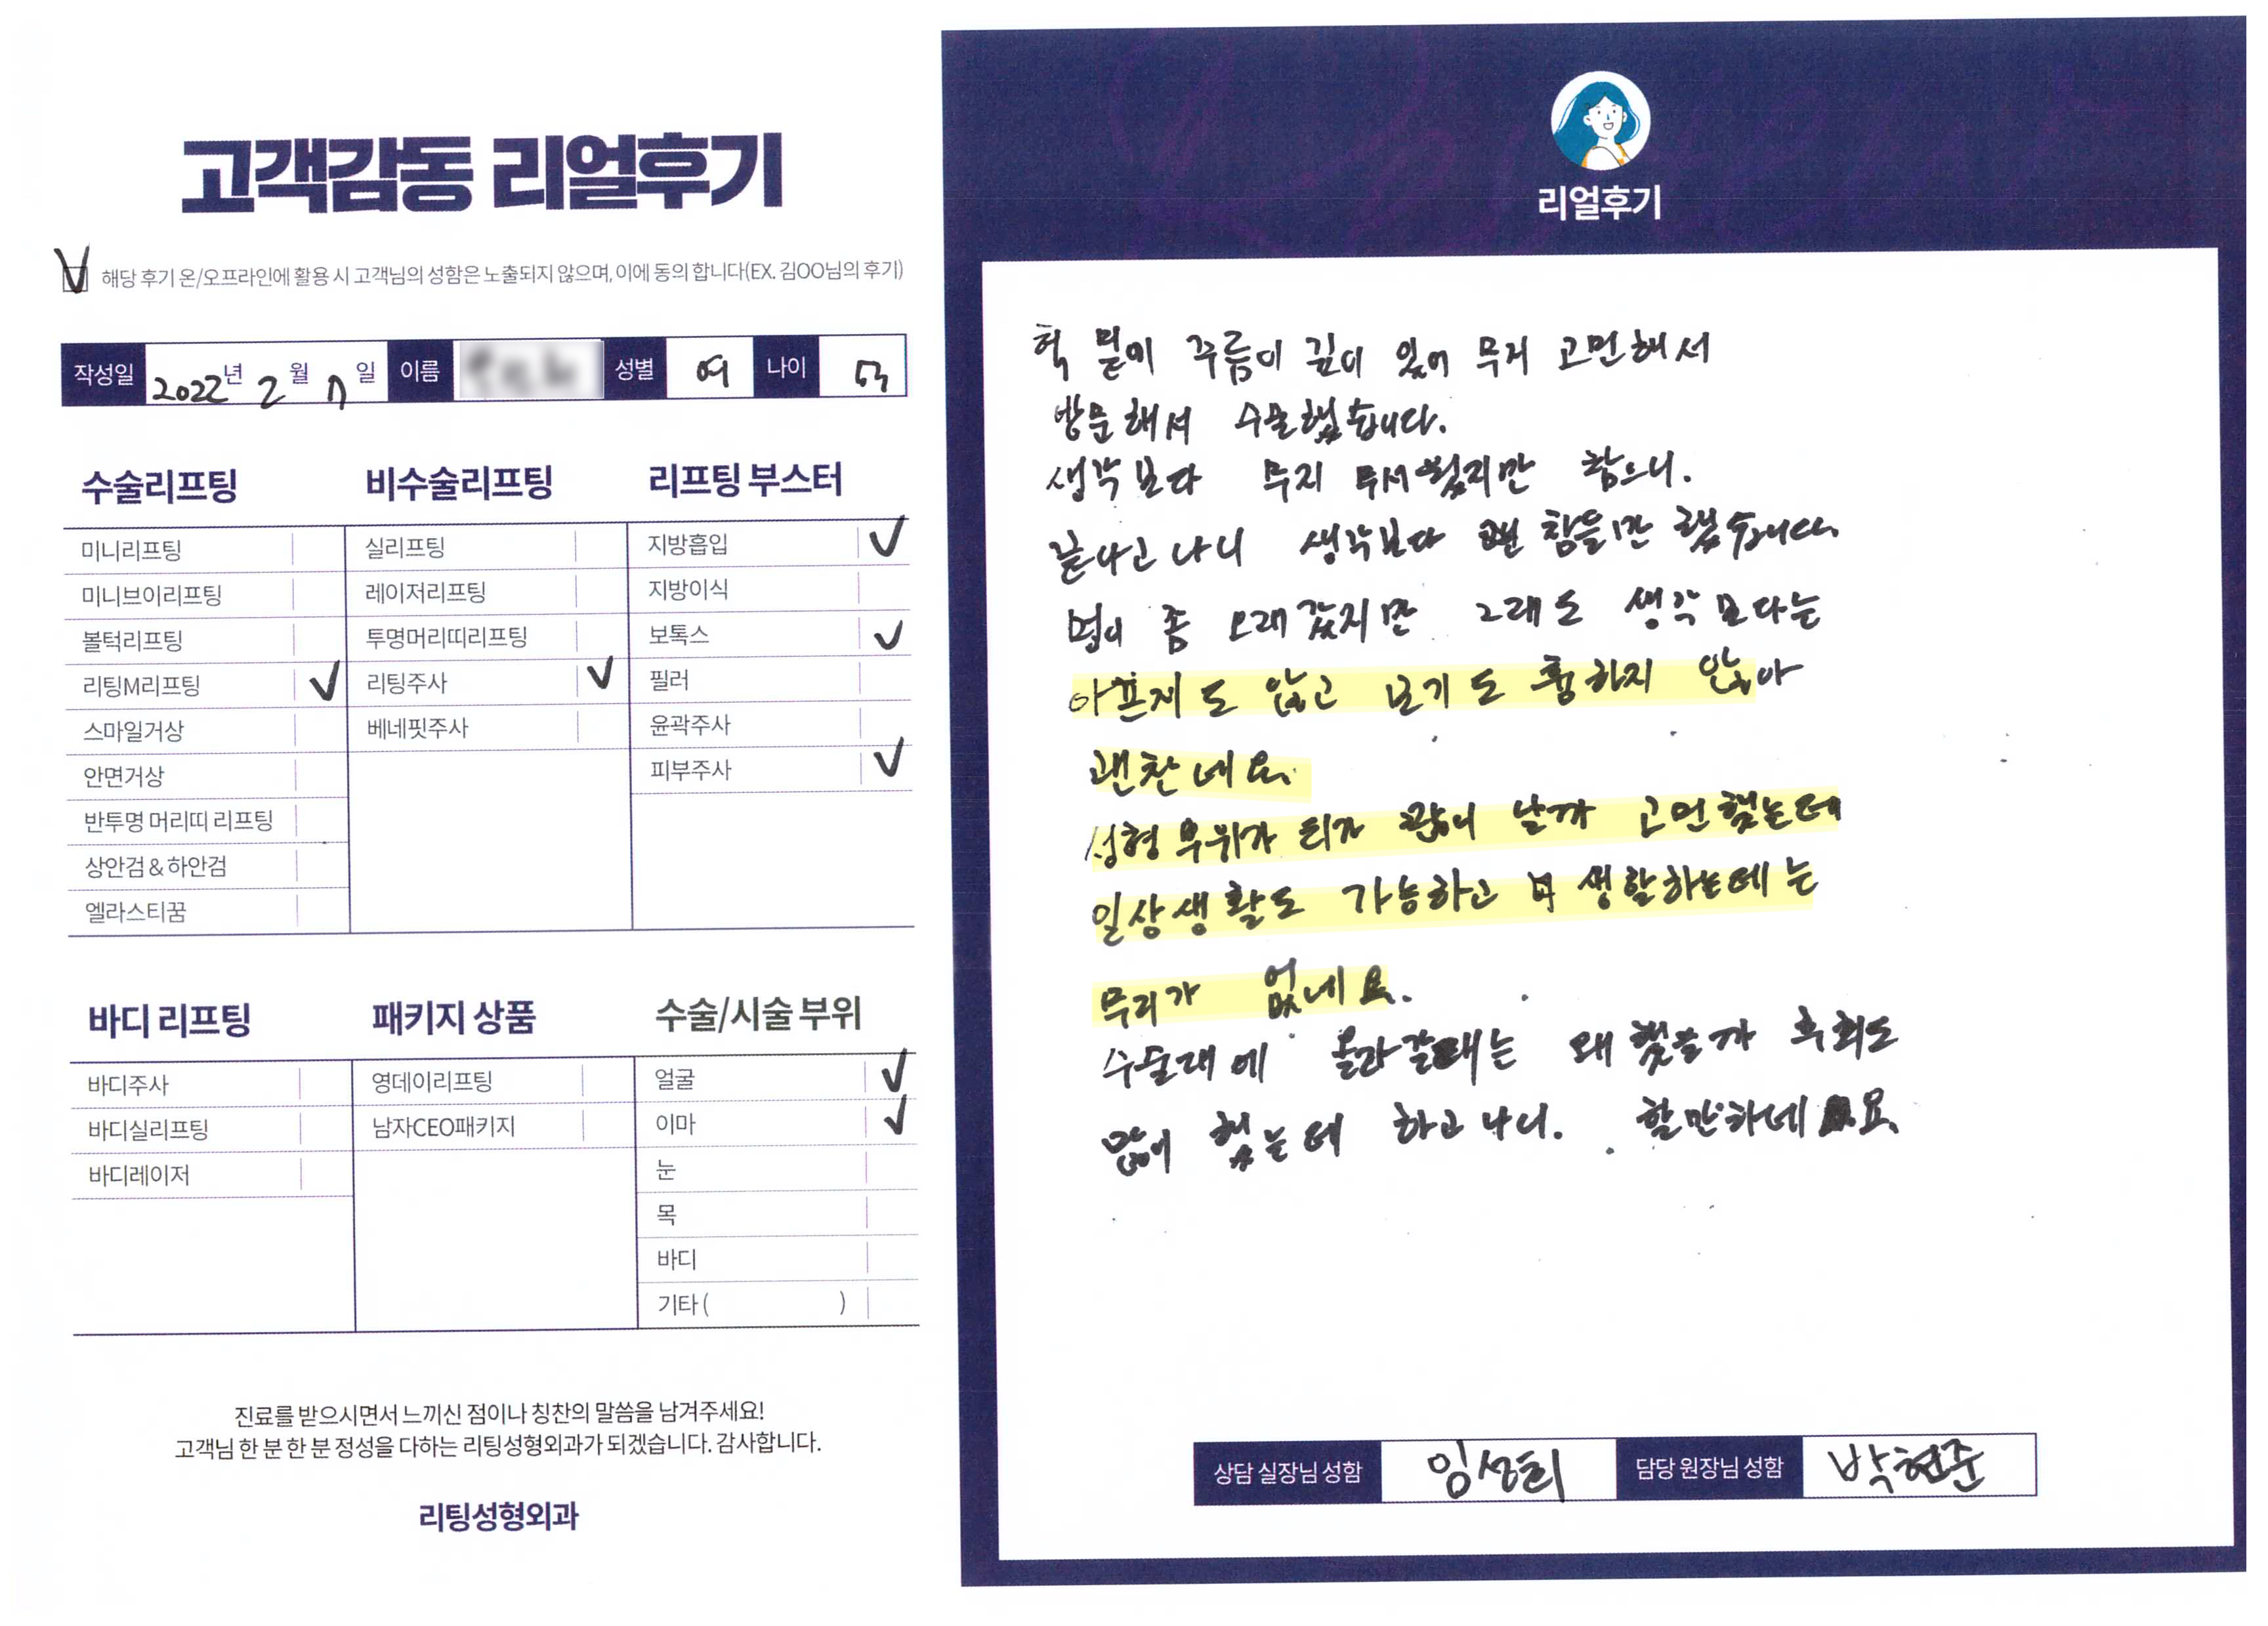 고객감동 리얼후기
해당 후기 온/오프라인에 활용 시 고객님의 성함은 노출되지 않으며, 이에 동의 합니다(EX. 김OO님의 후기)
작성일 2022년 2월 7일 이름 성별 여 나이 53
수술리프팅
미니리프팅
미니브이리프팅
볼턱리프팅
리팅M리프팅
스마일거상
안면거상
반투명 머리띠 리프팅
상안검 & 하안검
엘라스티꿈
비수술리프팅
실리프팅
레이저리프팅
투명머리띠리프팅
리팅주사
베네핏주사
리프팅 부스터
지방흡입
지방이식
보톡스
필러
윤곽주사
피부주사
바디 리프팅
바디주사
바디실리프팅
바디레이저
패키지 상품
영데이리프팅
남자CEO패키지
수술/시술 부위
얼굴
이마
눈
목
바디
기타 ( )
진료를 받으시면서 느끼신 점이나 칭찬의 말씀을 남겨주세요!
고객님 한 분 한 분 정성을 다하는 리팅성형외과가 되겠습니다. 감사합니다.
리팅성형외과
리얼후기
턱 밑에 주름이 깊이 있어 무지 고민해서
방문해서 수술했습니다.
생각보다 무지 무서웠지만 참으니.
끝나고 나니 생각보다 참을만 했습니다.
멍이 좀 오래갔지만 그래도 생각보다는
아프지도 않고 보기도 흉하지 않아
괜찮네요.
성형 부위가 티가 많이 날까 고민했는데
일상생활도 가능하고 생활하는데는
무리가 없네요.
수술대에 올라갈때는 왜 했을까 후회도
많이 했는데 하고나니. 할만하네요.
상담 실장님 성함 임성희 담당 원장님 성함 박현준